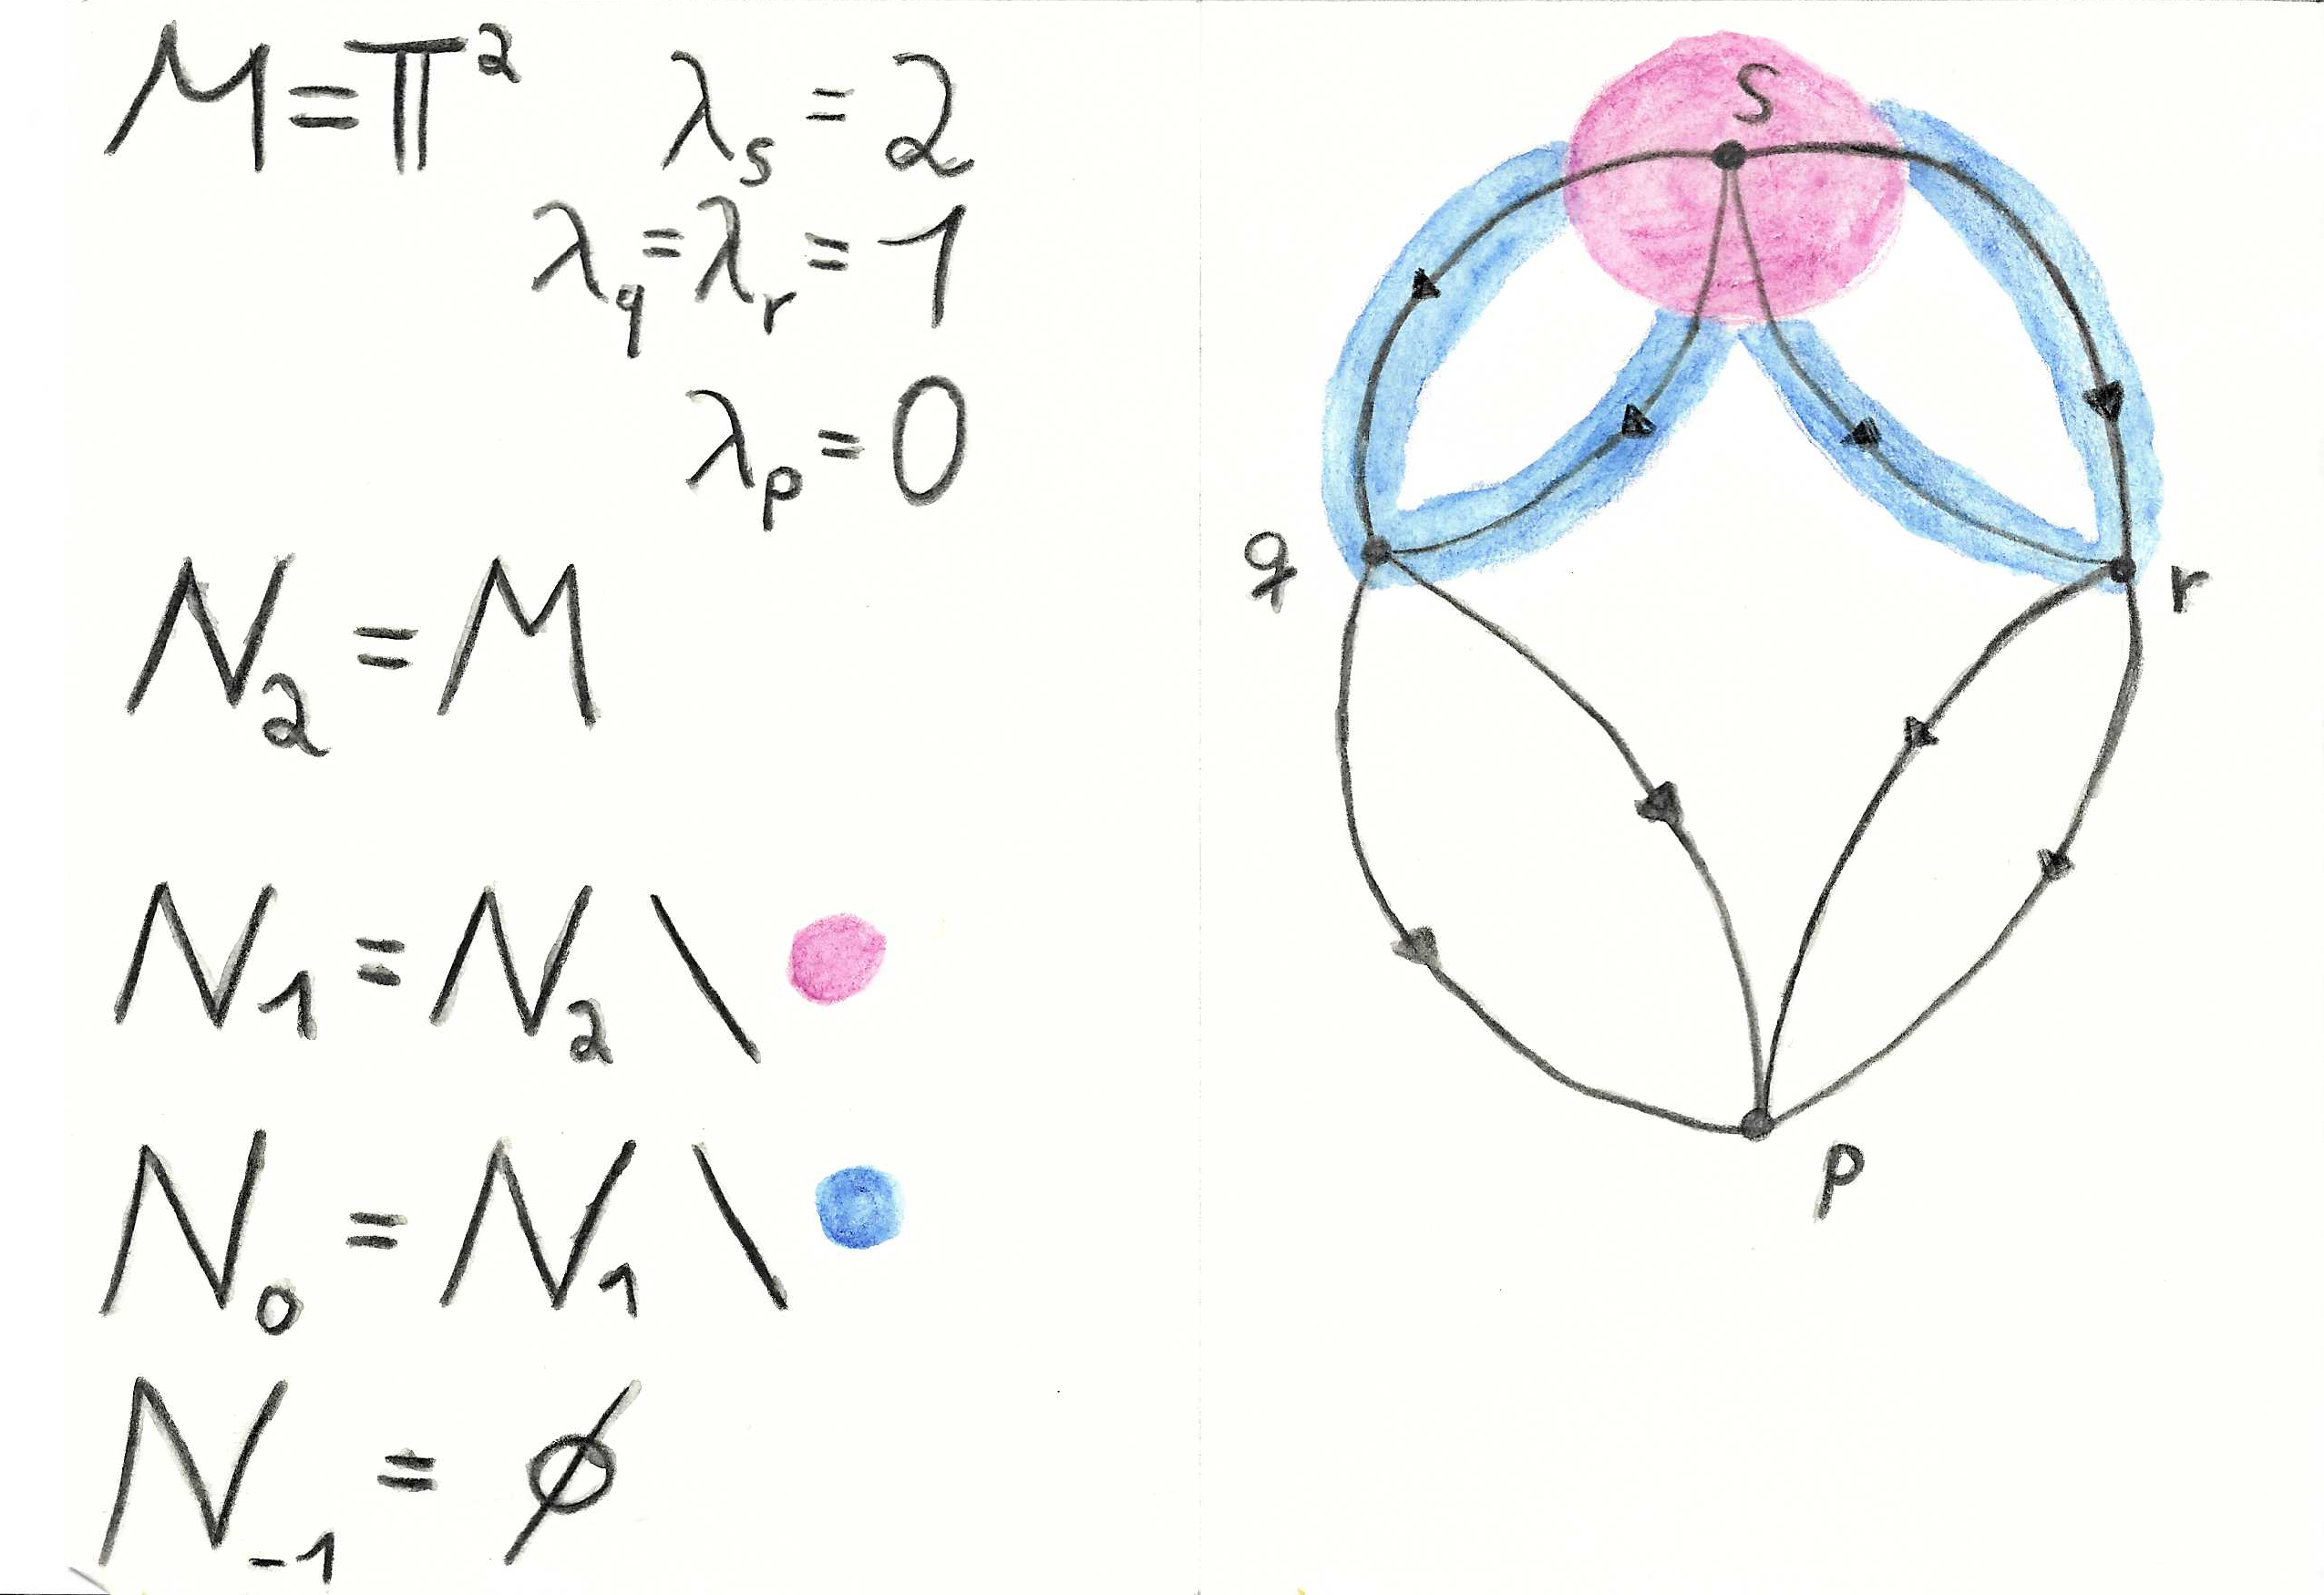 M=𝕋² λₛ = 2
λ_q = λ_r = 1
λ_p = 0
N₂ = M
N₁ = N₂ \
N₀ = N₁ \
N₋₁ = ∅
S
q
r
p